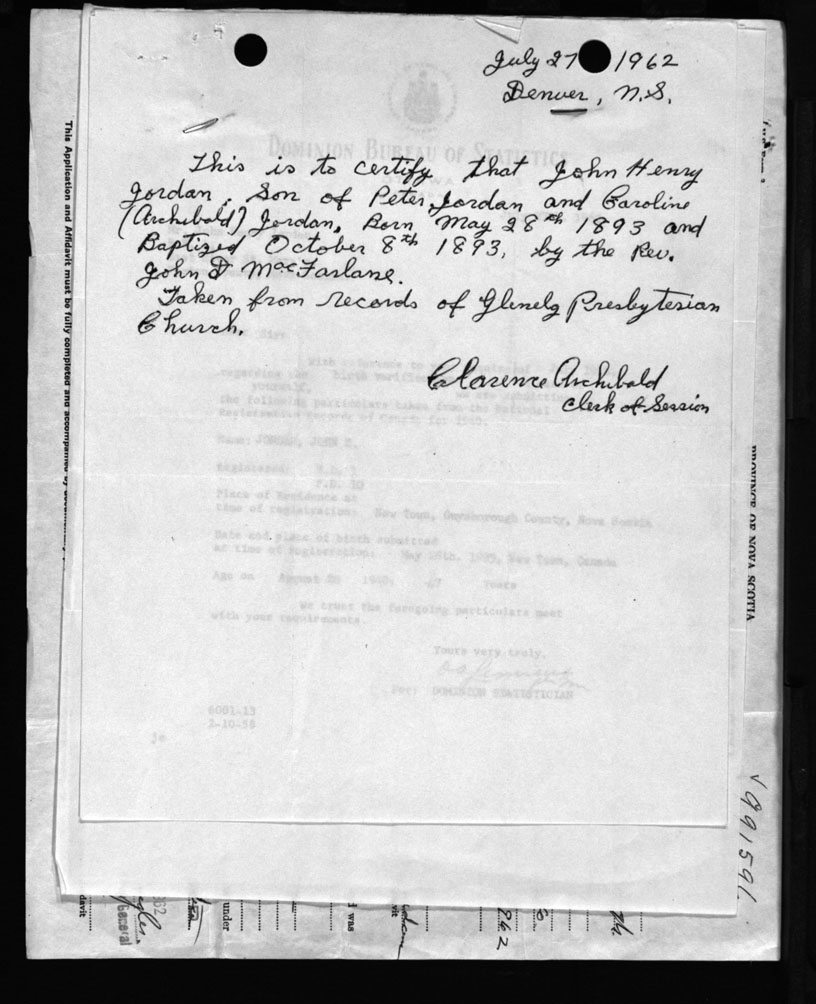 July 27 1962
Denver, N.S.
This is to certify that John Henry
Jordan. Son of Peter Jordan and Caroline
(Archibald) Jordan, Born May 28th 1893 and
Baptized October 8th 1893, by the Rev.
John D MacFarlane.
Taken from records of Glenelg Presbyterian
Church.
Clarence Archibald
Clerk of Session
DOMINION BUREAU OF STATISTICS
With reference to
regarding the birth
yourself,
the following particulars taken from the National
Registration Records of
Name: JORDAN, JOHN H.
Registered:
Place of Residence at
time of registration: New Town, Guysborough County, Nova Scotia
Date and place of birth submitted
at time of registration: May 28th. 1893, New Town, Canada
Age on August 1940: 47 Years
We trust the foregoing particulars meet
with your requirements.
Yours very truly,
For: DOMINION STATISTICIAN
6001-13
2-10-58
je
This Application and Affidavit must be fully completed and accompanied by
PROVINCE OF NOVA SCOTIA
991591
davit
General
under
I was
vit
962